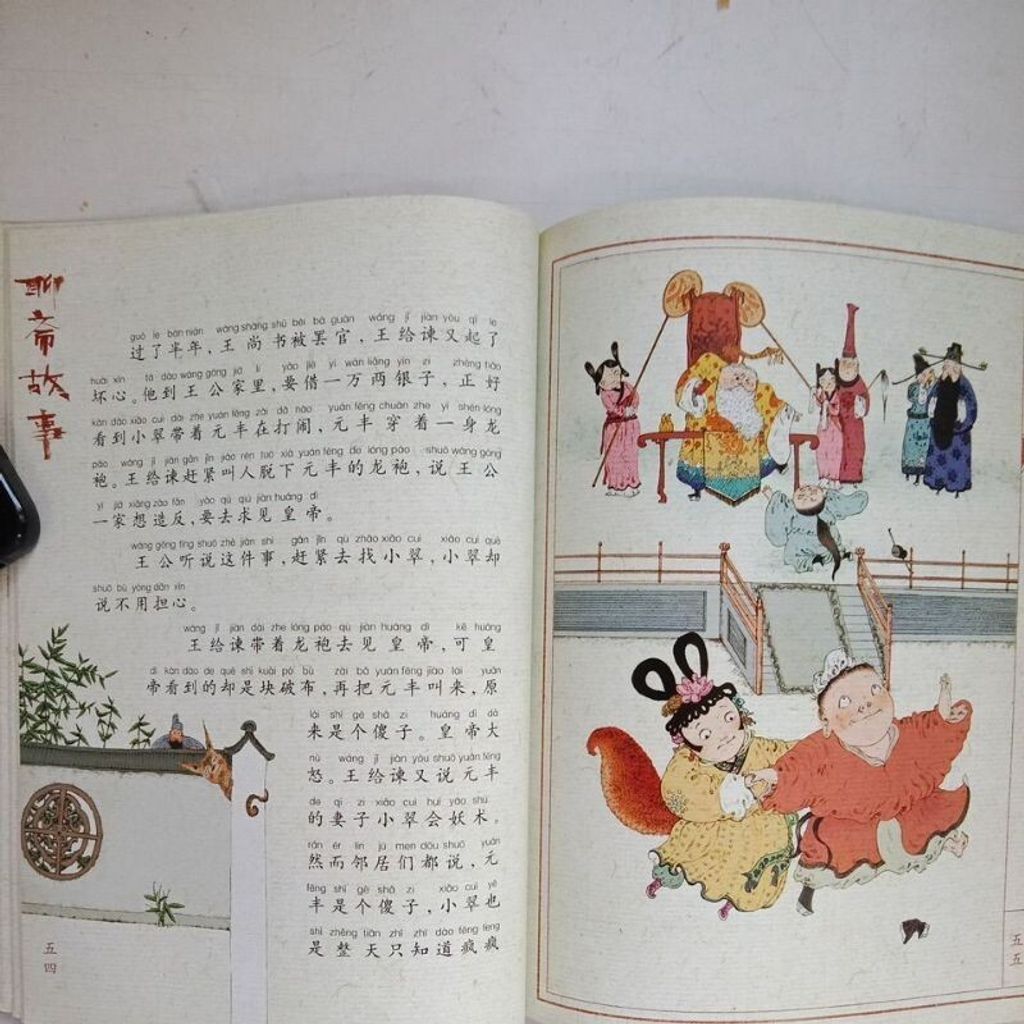 聊斋故事
guò le bàn nián wáng shàng shū bèi bà guān wáng jǐ jiàn yòu qǐ le
过了半年,王尚书被罢官,王给谏又起了
huài xīn tā dào wáng gōng jiā lǐ yào jiè yí wàn liǎng yín zi zhèng hǎo
坏心。他到王公家里,要借一万两银子,正好
kàn dào xiǎo cuì dài zhe yuán fēng zài dǎ nào yuán fēng chuān zhe yì shēn lóng
看到小翠带着元丰在打闹,元丰穿着一身龙
páo wáng jǐ jiàn gǎn jǐn jiào rén tuō xià yuán fēng de lóng páo shuō wáng gōng
袍。王给谏赶紧叫人脱下元丰的龙袍,说王公
yì jiā xiǎng zào fǎn yào qù qiú jiàn huáng dì
一家想造反,要去求见皇帝。
wáng gōng tīng shuō zhè jiàn shì gǎn jǐn qù zhǎo xiǎo cuì xiǎo cuì què
王公听说这件事,赶紧去找小翠,小翠却
shuō bú yòng dān xīn
说不用担心。
wáng jǐ jiàn dài zhe lóng páo qù jiàn huáng dì kě huáng
王给谏带着龙袍去见皇帝,可皇
dì kàn dào de què shì kuài pò bù zài bǎ yuán fēng jiào lái yuán
帝看到的却是块破布,再把元丰叫来,原
lái shì gè shǎ zi huáng dì dà
来是个傻子。皇帝大
nù wáng jǐ jiàn yòu shuō yuán fēng
怒。王给谏又说元丰
de qī zi xiǎo cuì huì yāo shù
的妻子小翠会妖术。
rán ér lín jū men dōu shuō yuán
然而邻居们都说,元
fēng shì gè shǎ zi xiǎo cuì yě
丰是个傻子,小翠也
shì zhěng tiān zhǐ zhī dào fēng feng
是整天只知道疯疯
五四
五五